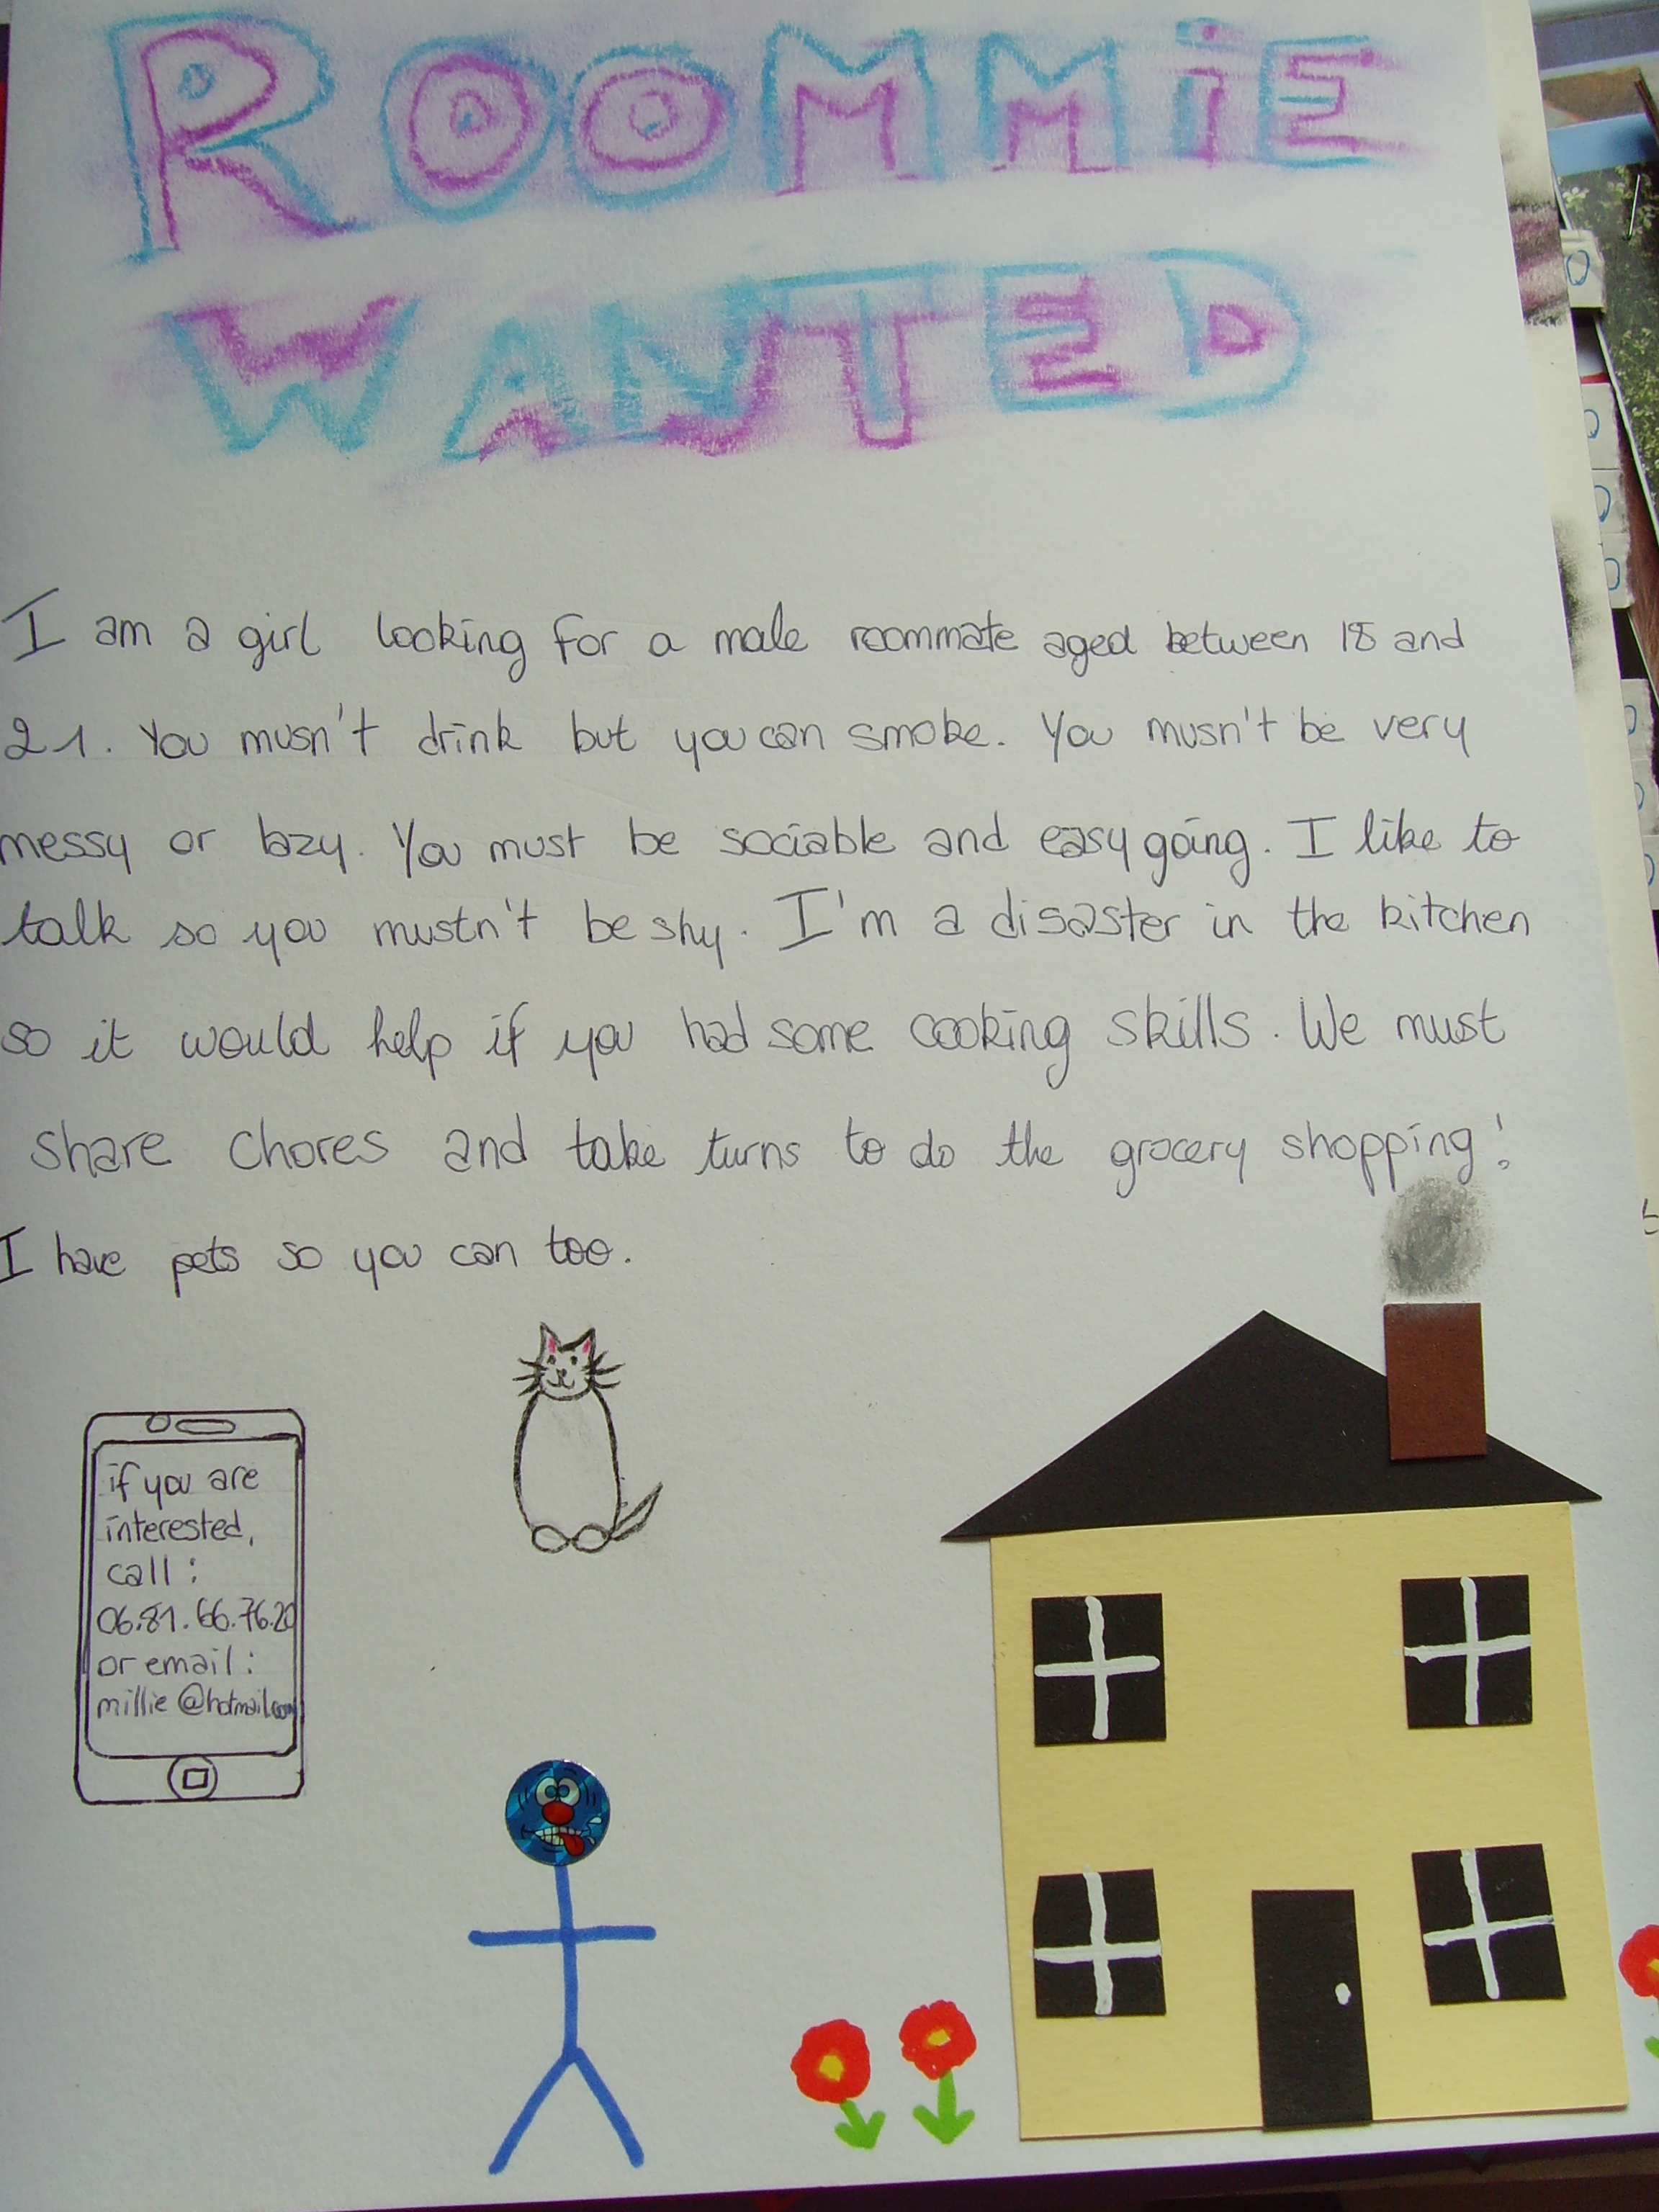 ROOMMiE
WANTED
I am a girl looking for a male roommate aged between 18 and
21. You musn't drink but you can smoke. You musn't be very
messy or lazy. You must be sociable and easy going. I like to
talk so you mustn't be shy. I'm a disaster in the kitchen
so it would help if you had some cooking skills. We must
share chores and take turns to do the grocery shopping!
I have pets so you can too.
if you are
interested,
call :
06.81.66.76.20
or email :
millie@hotmail.com